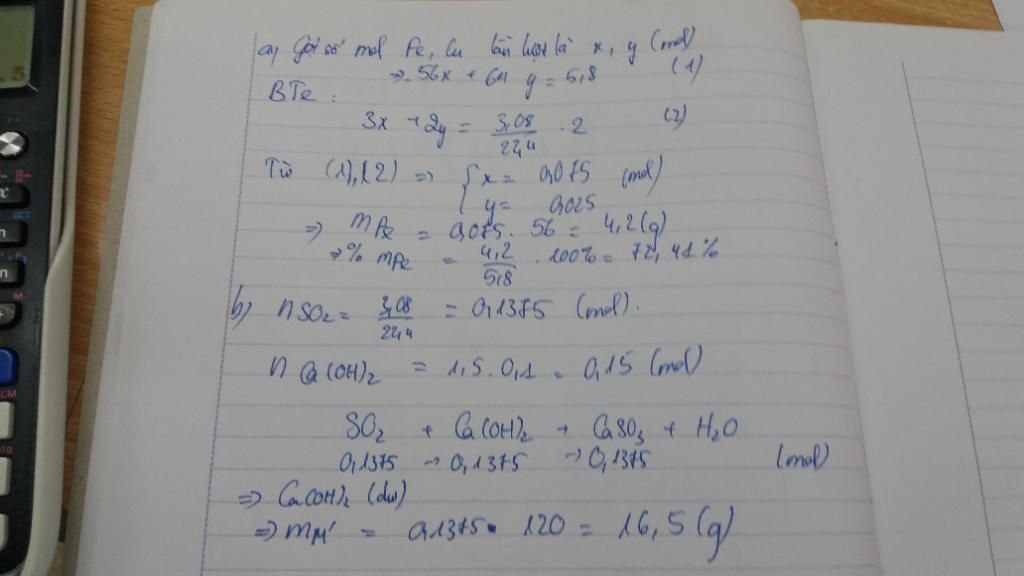 a) Gọi số mol Fe, Cu lần lượt là x, y (mol)
=> 56x + 64 y = 5,8 (1)
BTe :
3x + 2y = 3,08/22,4 . 2 (2)
Từ (1), (2) => { x = 0,075 (mol)
y = 0,025
=> mFe = 0,075 . 56 = 4,2 (g)
=> % mFe = 4,2/5,8 . 100% = 72,41%
b) nSO2 = 3,08/22,4 = 0,1375 (mol).
n Ca(OH)2 = 1,5 . 0,1 = 0,15 (mol)
SO2 + Ca(OH)2 → CaSO3 + H2O
0,1375 → 0,1375 → 0,1375 (mol)
=> Ca(OH)2 (dư)
=> mM' = 0,1375 . 120 = 16,5 (g)